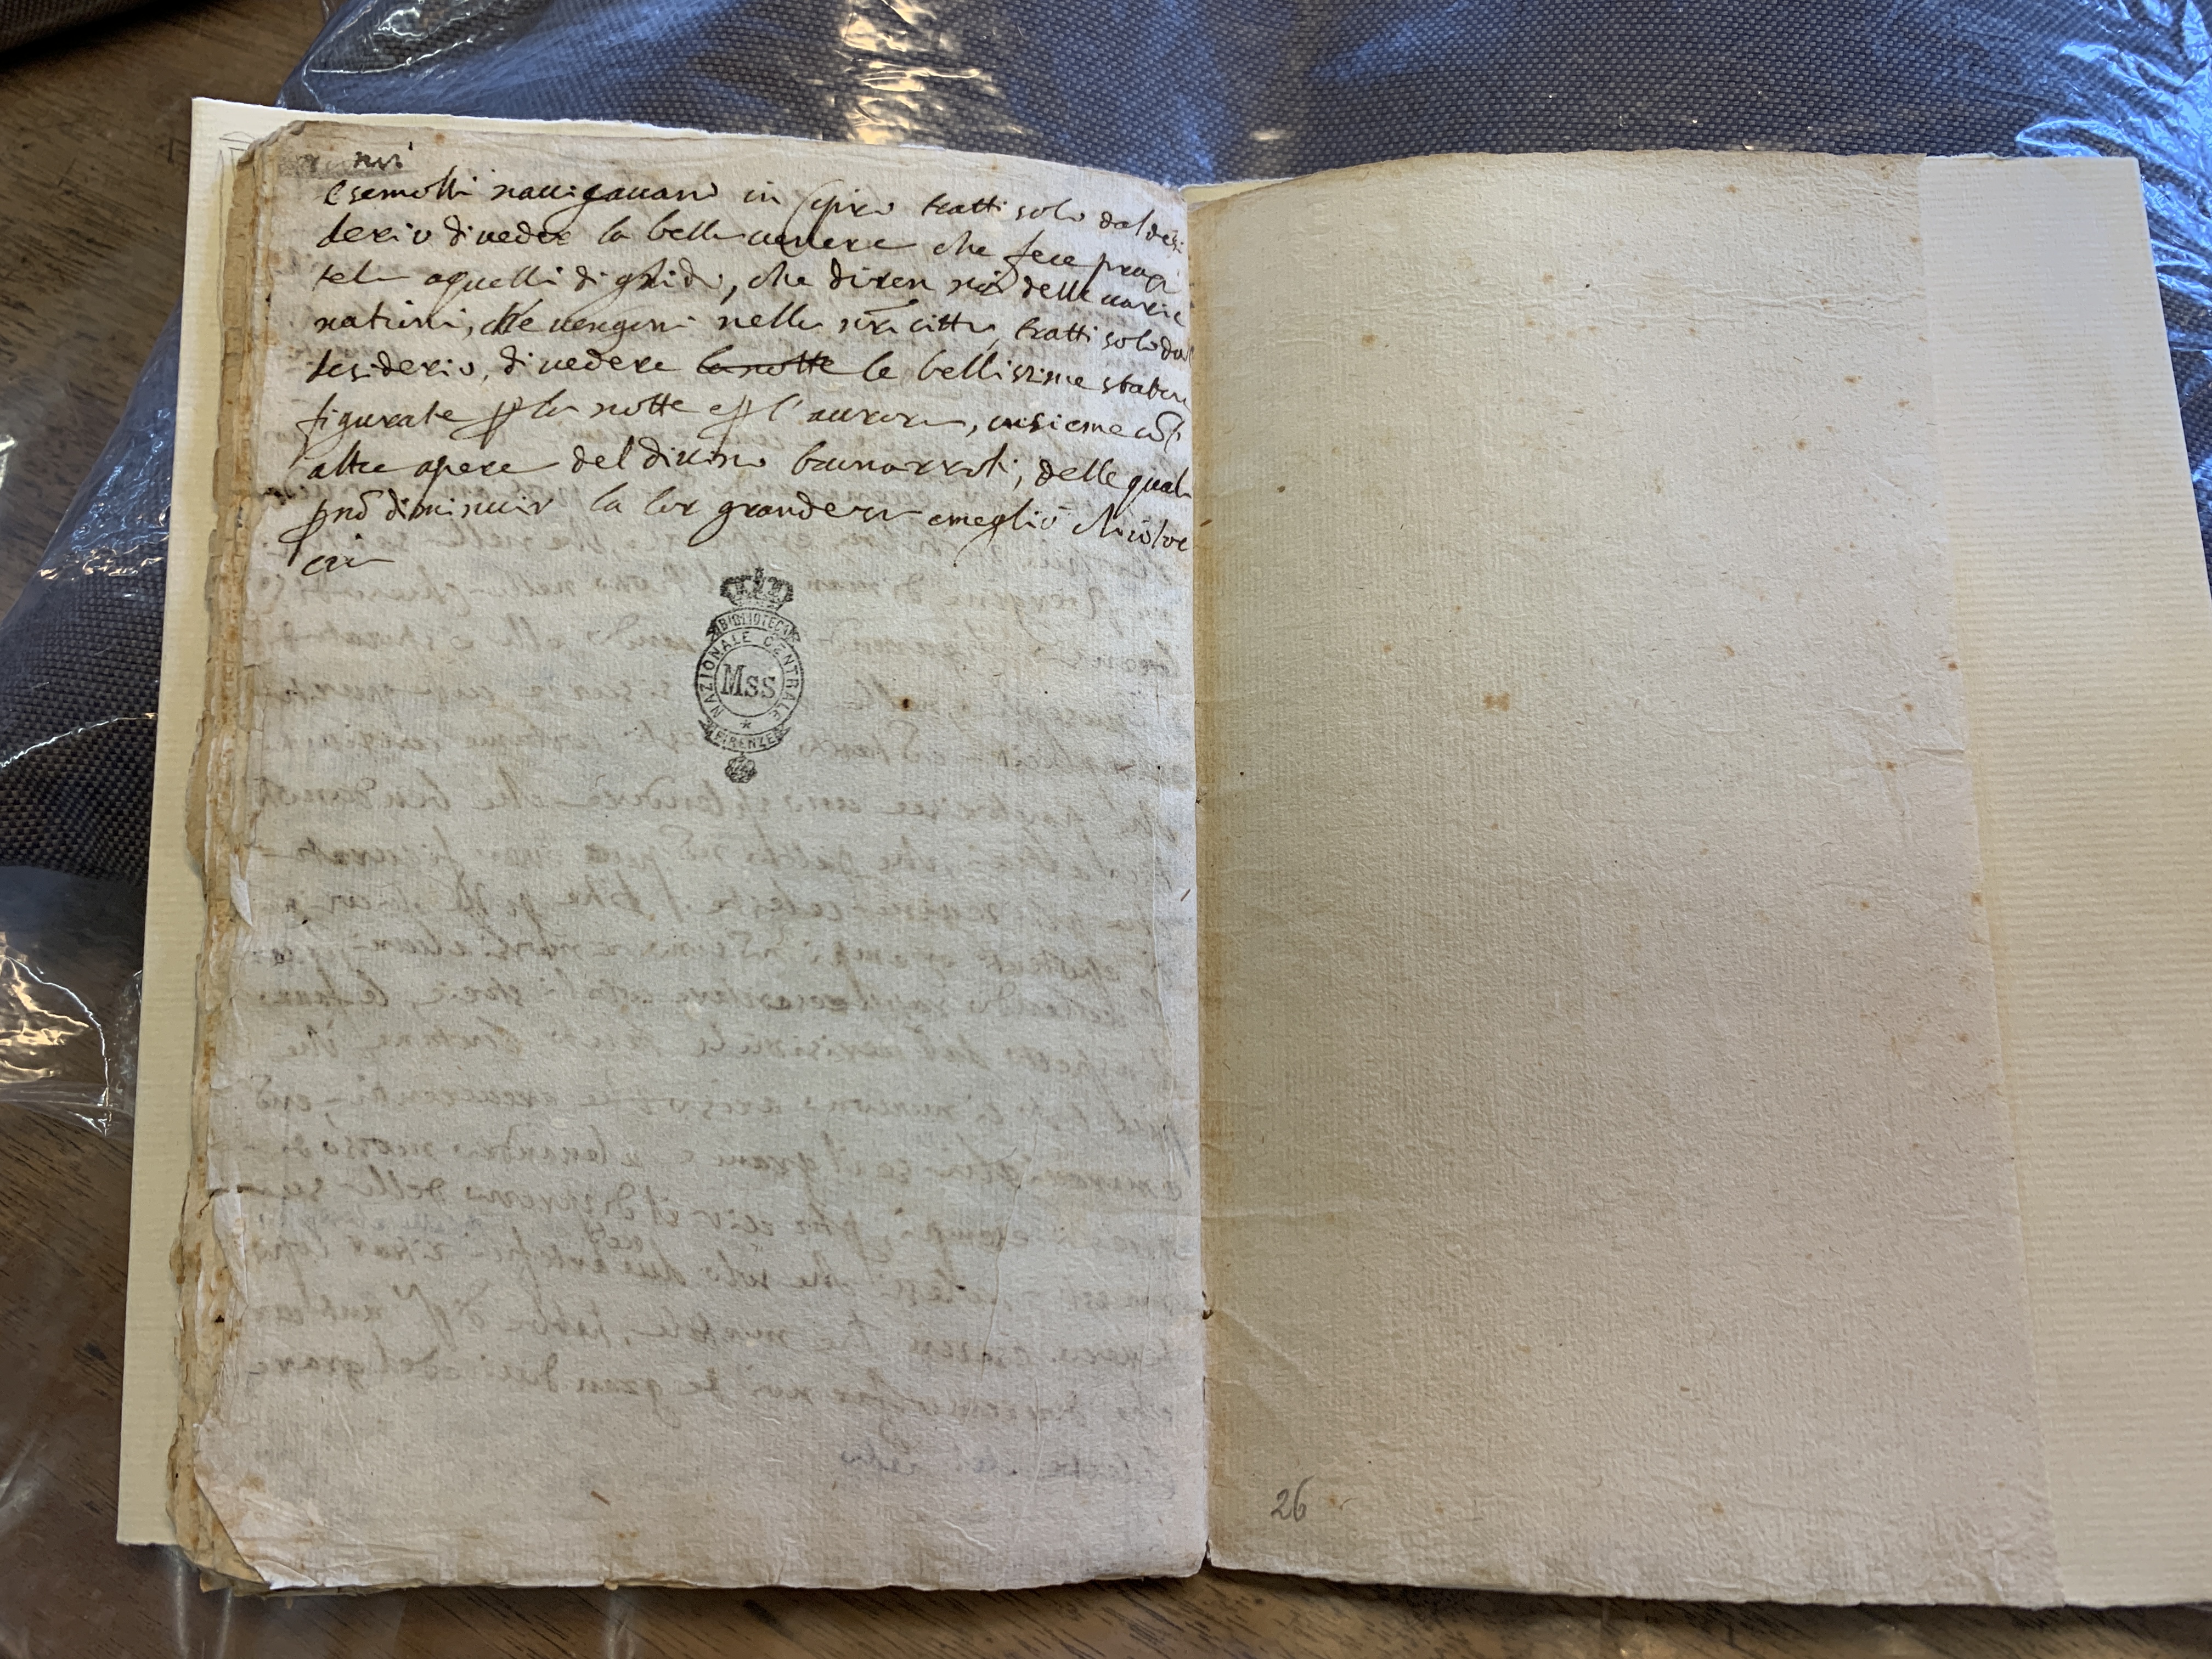 navi
e se molti navigavano in Cipro tratti solo dal desi
derio di vedere la bella Venere che fece prasi
tele a quelli di gnido, che diren noi delle varie
nationi, che vengon nella nra citta tratti solo dal
desiderio, di vedere la notte le bellissime statue
figurate p la notte e p l'aurora, insieme co l'
altre opere del divino buonarroti, delle quali
p nō diminuir la lor grandezza e meglio
cer
BIBLIOTECA NAZIONALE CENTRALE
* FIRENZE *
Mss.
26